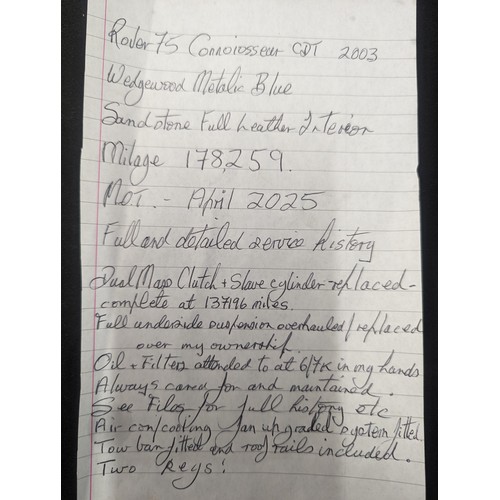 Rover 75 Connoiosseur CDT 2003
Wedgewood Metalic Blue
Sandstone Full Leather Interior
Milage 178,259.
M.O.T. - April 2025
Full and detailed service history
Dual Mass Clutch + Slave cylinder replaced -
complete at 137196 miles.
Full underside suspension overhauled / replaced
over my ownership.
Oil + Filters attended to at 6/7K in my hands
Always cared for and maintained.
See Files for full history etc
Air con/cooling fan upgraded system fitted.
Tow bar fitted and roof rails included.
Two keys!